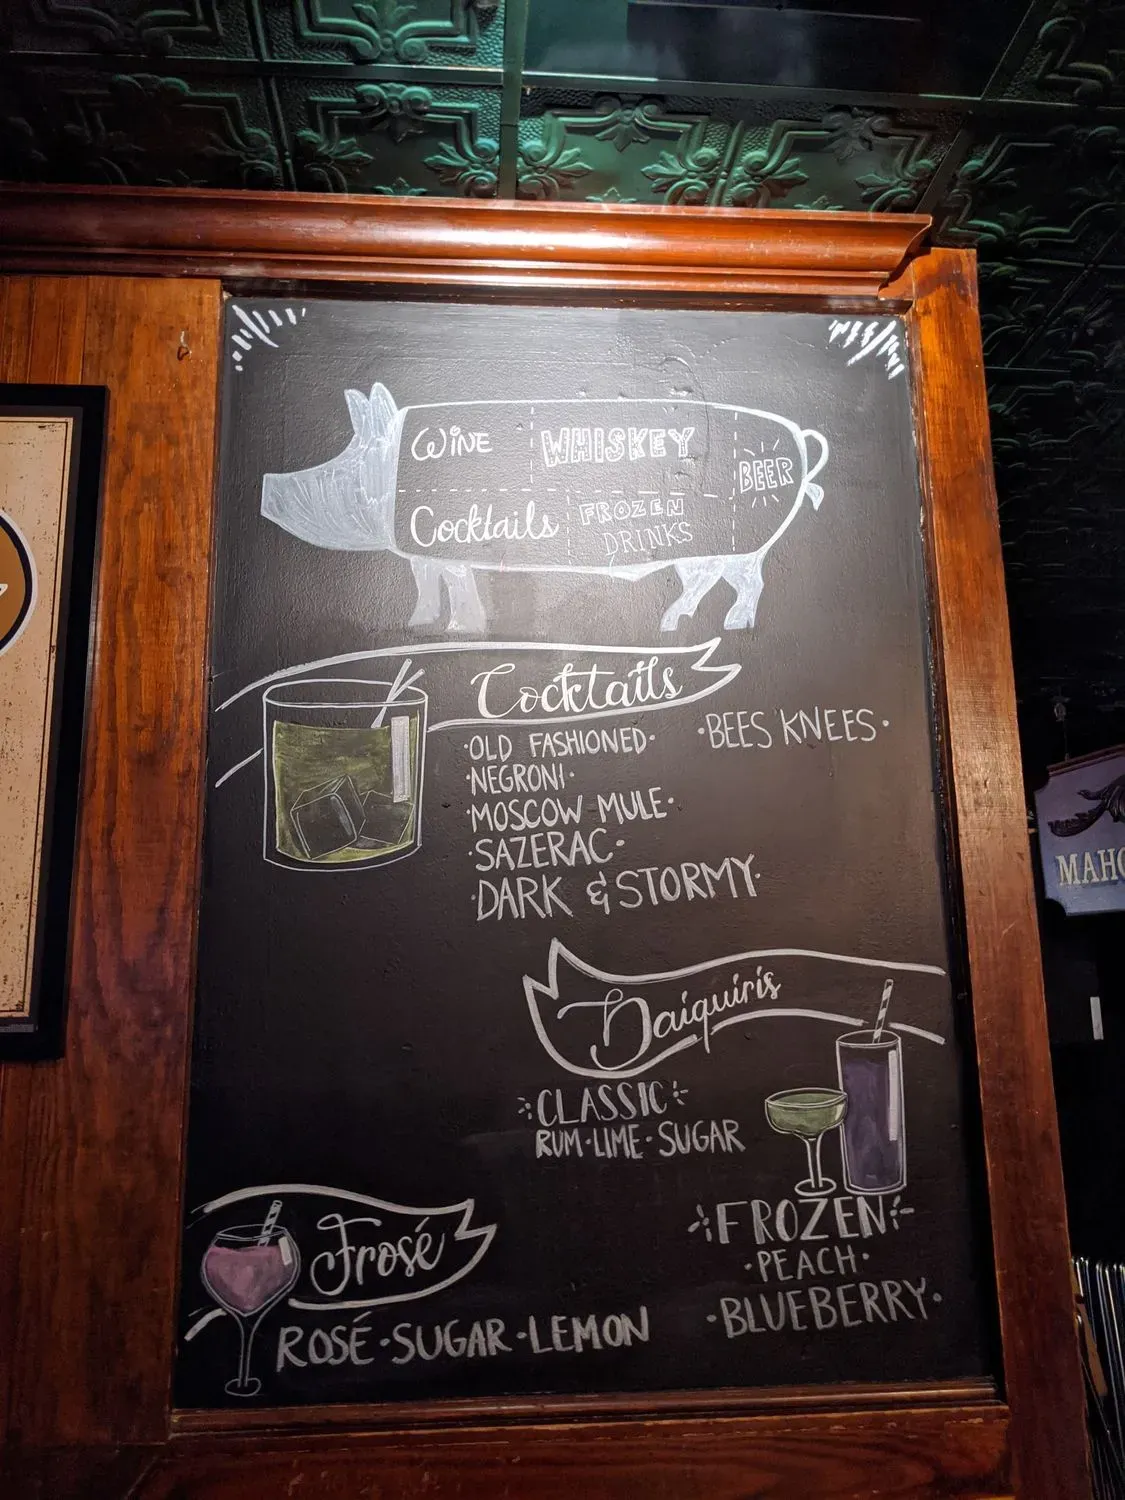 WINE
WHISKEY
BEER
Cocktails
FROZEN
DRINKS
Cocktails
·OLD FASHIONED·
·NEGRONI·
·MOSCOW MULE·
·SAZERAC·
·DARK & STORMY·
·BEES KNEES·
Daiquiris
CLASSIC
RUM·LIME·SUGAR
FROZEN
·PEACH·
·BLUEBERRY·
Frosé
ROSÉ·SUGAR·LEMON